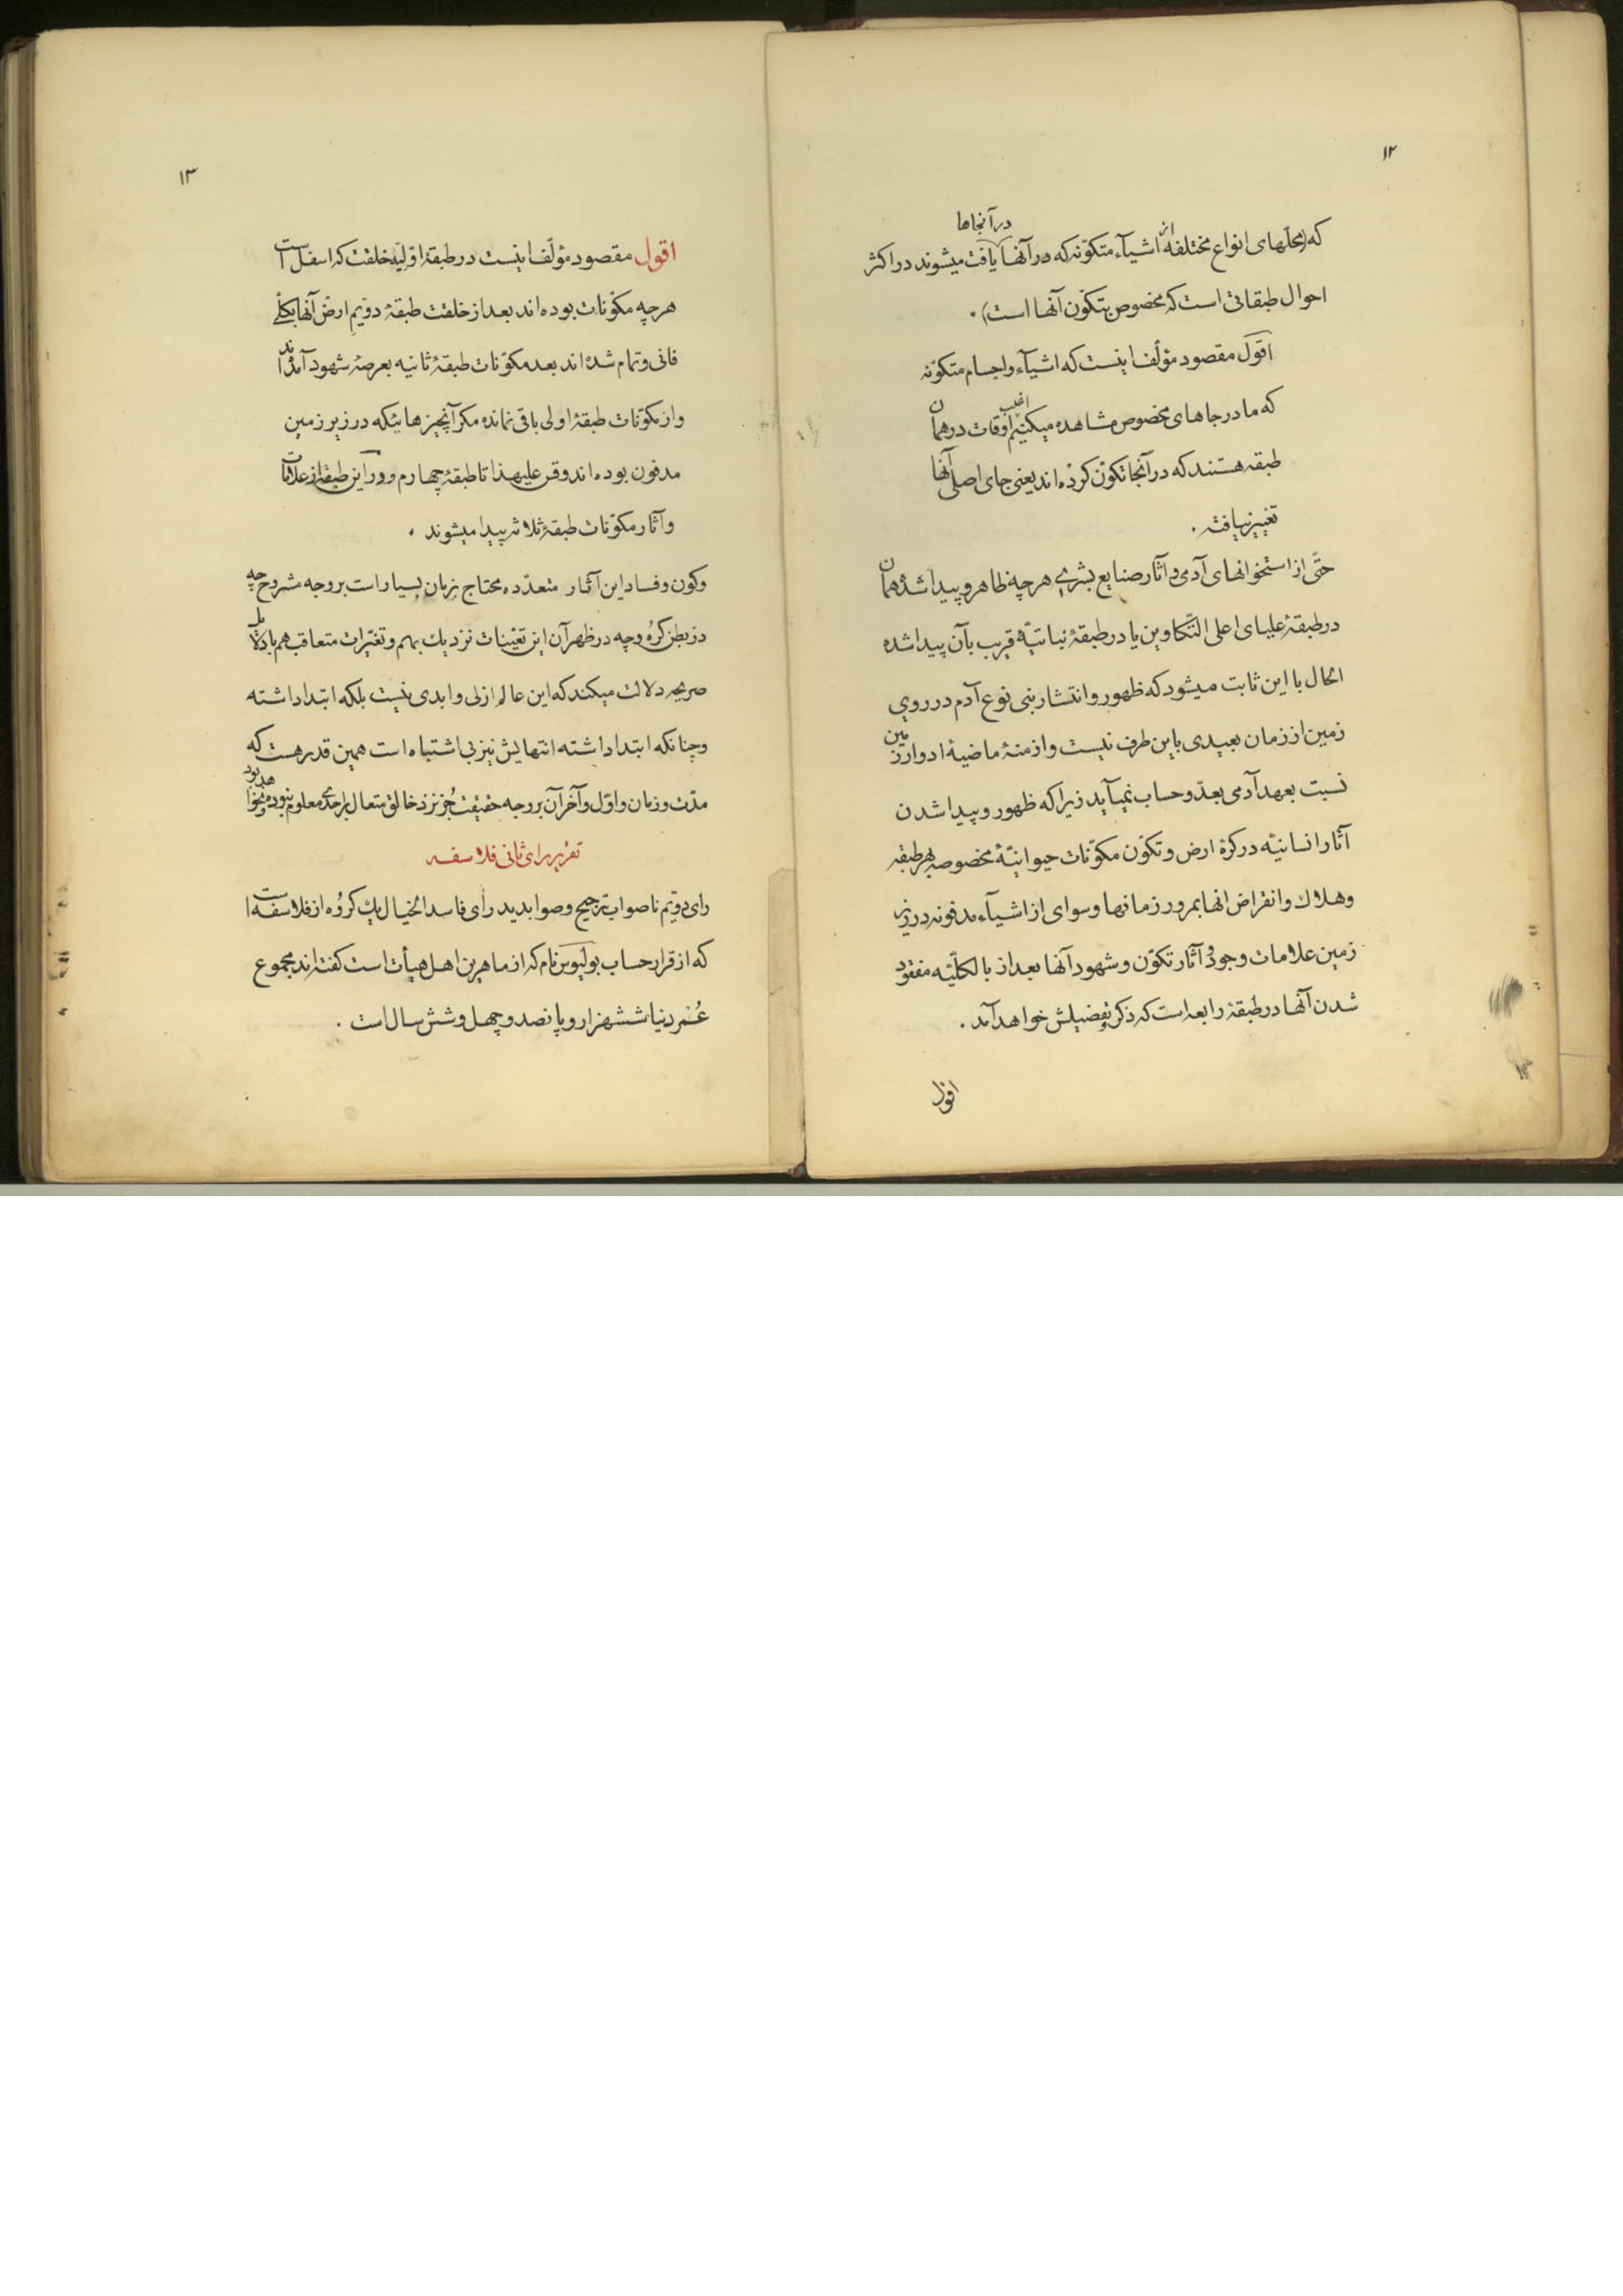 ۱۲
در آنجاها
که (محلهای انواع مختلفهٔ از اشیآء متکوّنه که در آنها یافت میشوند در اکثر
احوال طبقاتی است که مخصوص بتکوّن آنها است) ۰
اقول مقصود مؤلّف اینست که اشیآء و اجسام متکوّنه
که ما در جاهای مخصوص مشاهده میکنیم اغلب اوقات در همان
طبقه هستند که در آنجا تکوّن کرده‌اند یعنی جای اصلی آنها
تغییر نیافته ۰
حتّی از استخوانهای آدمی و آثار صنایع بشری هر چه ظاهر و پیدا شده همان
در طبقهٔ علیای اعلی التّکاوین یا در طبقهٔ نباتیّهٔ قریب بآن پیدا شده
الحال با این ثابت میشود که ظهور و انتشار بنی نوع آدم در روی
زمین از زمان بعیدی باین طرف نیست و ازمنهٔ ماضیهٔ ادوار زمین
نسبت بعهد آدمی بعدّ و حساب نمیآید زیرا که ظهور و پیدا شدن
آثار انسانیّه در کرهٔ ارض و تکوّن مکوّنات حیوانیّهٔ مخصوصه بهر طبقه
و هلاك و انقراض انها بمرور زمانها و سوای از اشیآء مدفونه در زیر
زمین علامات وجود و آثار تکوّن و شهود آنها بعد از بالکلّیّه مفقود
شدن آنها در طبقهٔ رابعه است که ذکر تفضیلش خواهد آمد ۰
اقول
۱۳
اقول مقصود مؤلّف اینست در طبقهٔ اوّلیّهٔ خلقت که اسفل است
هر چه مکوّنات بوده‌اند بعد از خلقت طبقهٔ دوّیم ارض آنها بکلّی
فانی و تمام شده‌اند بعد مکوّنات طبقهٔ ثانیه بعرصهٔ شهود آمده‌اند
و از مکوّنات طبقهٔ اولی باقی نمانده مکر آنچیزهائیکه در زیر زمین
مدفون بوده‌اند و قس علیهذا تا طبقهٔ چهارم و در این طبقه از علامات
و آثار مکوّنات طبقهٔ ثلاثه پیدا میشوند ۰
و کون و فساد این آثار متعدّده محتاج بزمان بسیار است بر وجه مشروح چه
در بطن کره و چه در ظهر آن این تعیّنات نزدیك بهم و تغیّرات متعاقب هم با دلایل
صریحه دلالت میکند که این عالم ازلی و ابدی نیست بلکه ابتدا داشته
و چنانکه ابتدا داشته انتهایش نیز بی اشتباه است همین قدر هست که
مدّت و زمان و اوّل و آخر آن بر وجه حقیقت جُز نزد خالق متعال بر احدی معلوم نبوده و نخواهد بود
تقریر رای ثانی فلاسفه
رای دوّیم ناصواب ترجیح و صوابدید رأی فاسد الخیال یك کروُه از فلاسفه است
که از قرار حساب بولیوس نام که از ماهرین اهل هیأت است کفته‌اند مجموع
عُمر دنیا ششهزار و پانصد و چهل و شش سال است ۰